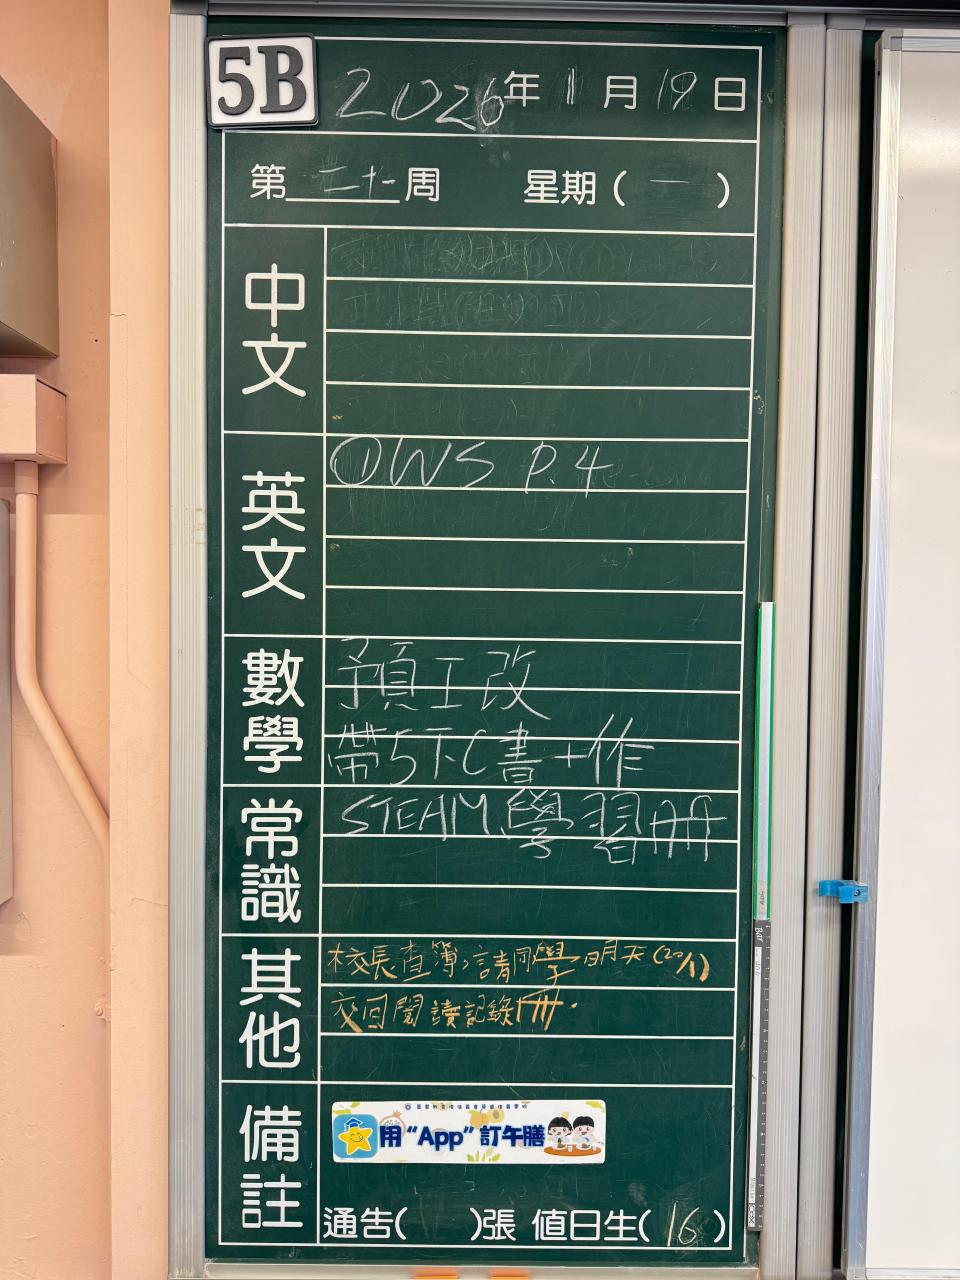 5B 2026年1月19日
第二十一周 星期(一)
中文
英文
①WS P.4
數學
預工改
帶5下C書+作
常識
STEAM學習冊
其他
校長查簿,請同學明天(20/1)
交回閱讀記錄冊.
備註
用“App”訂午膳
通告( )張 值日生(16)